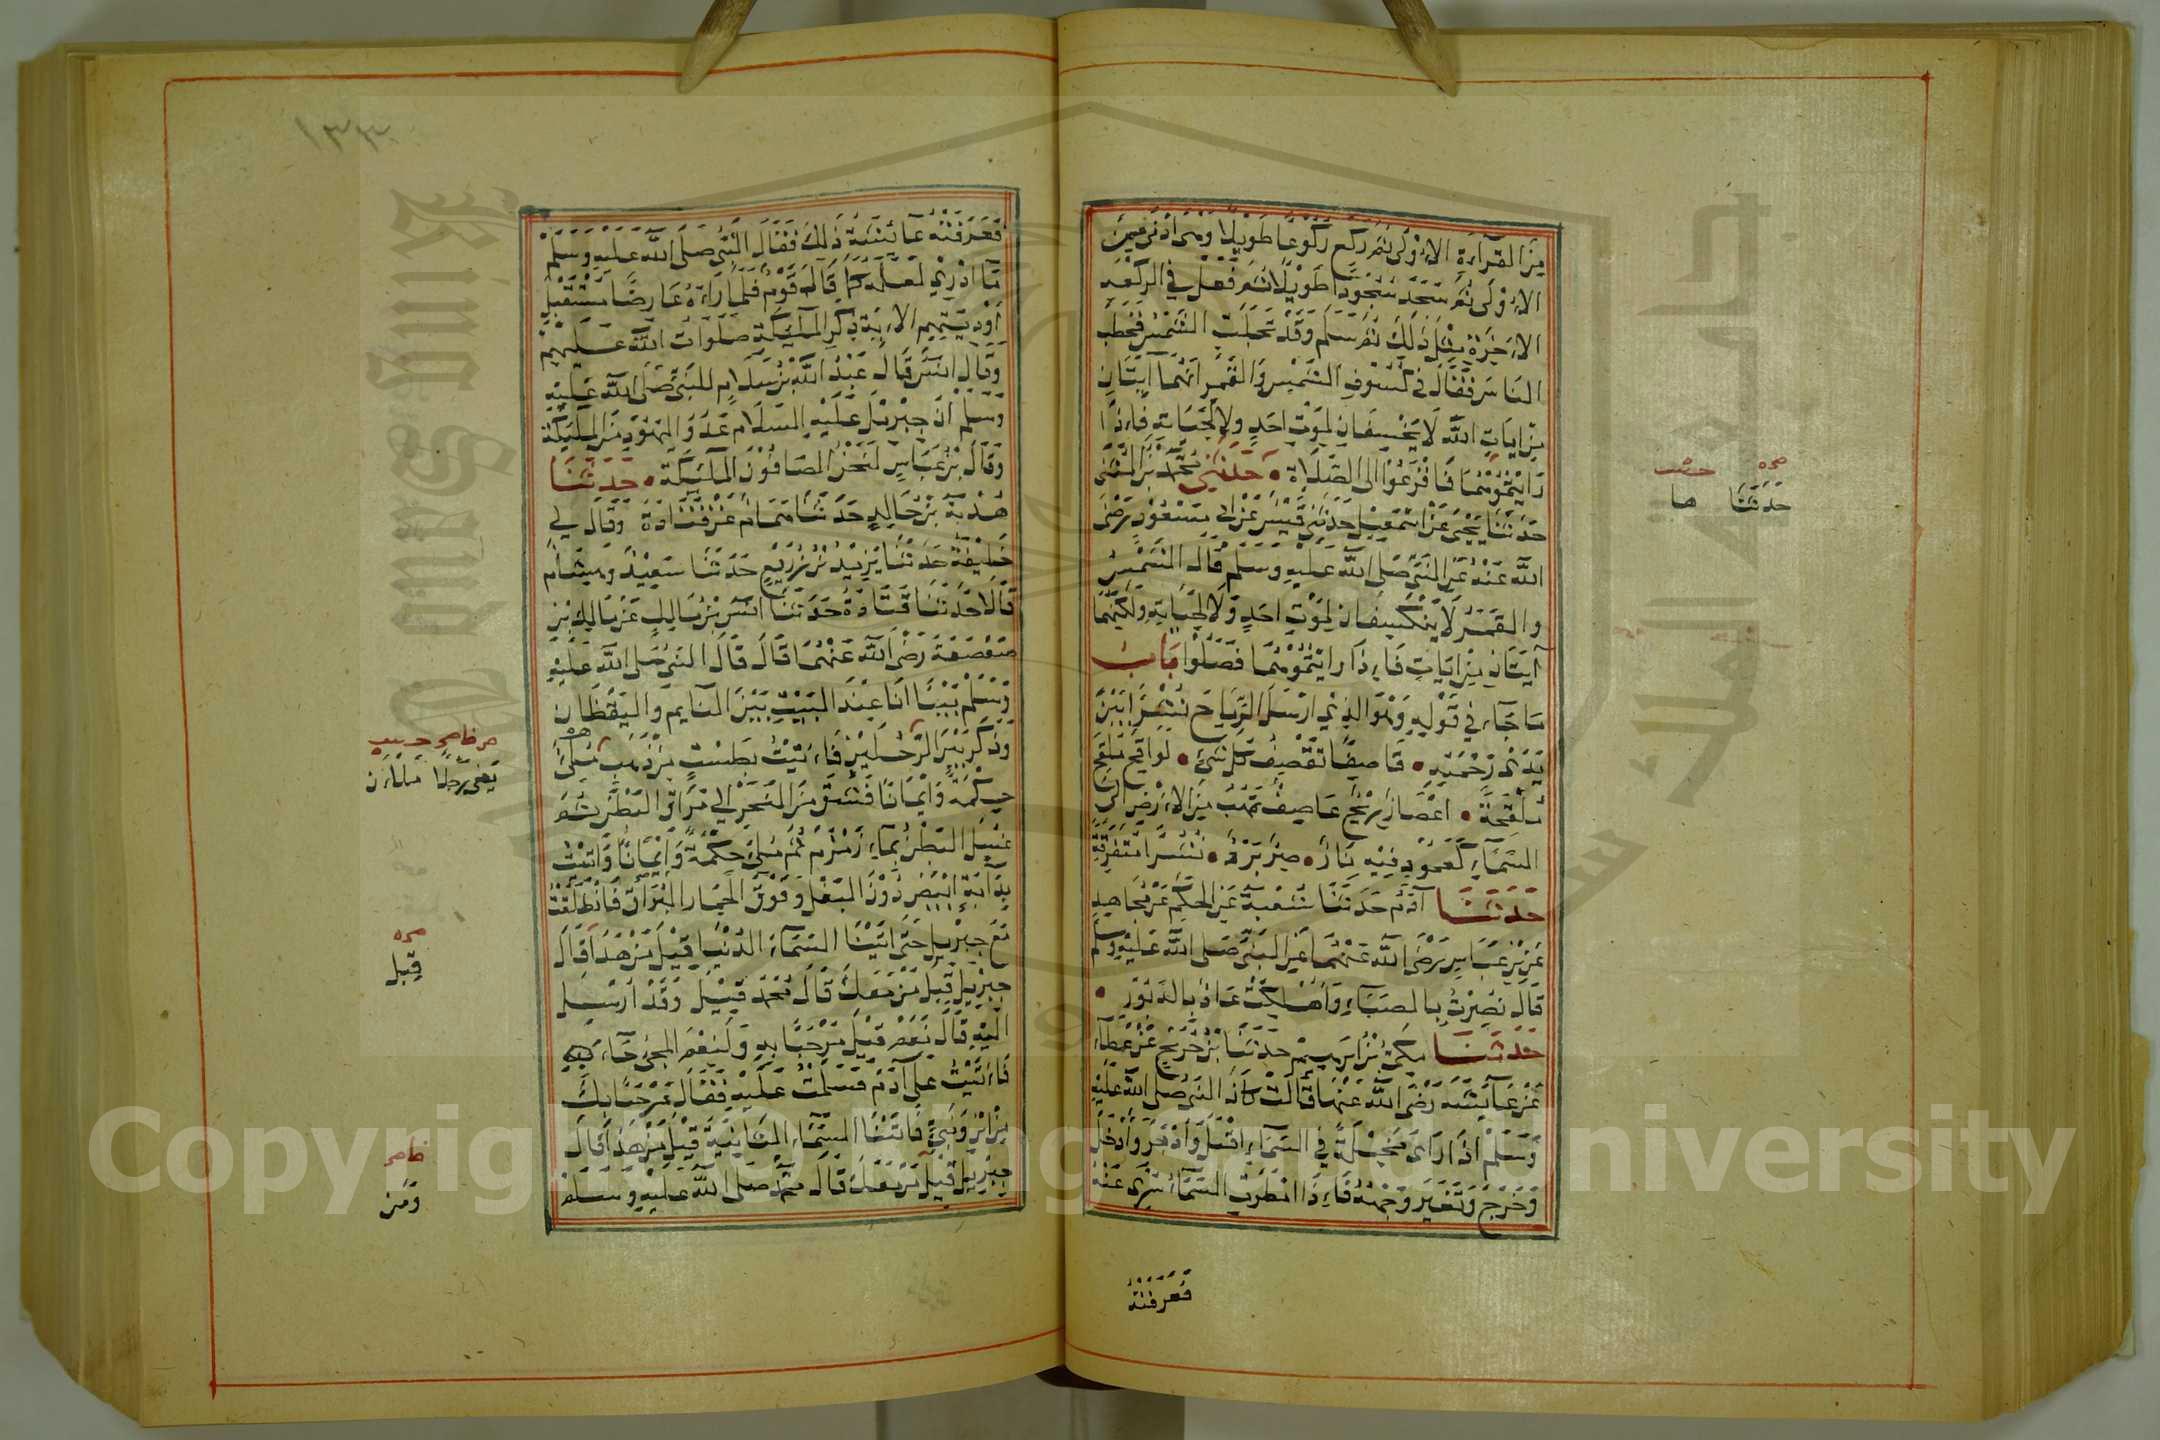 مِنَ القرآءَةِ الاُوْلى ثُمَّ رَكَعَ رُكُوْعًا طَوِيْلًا وَهْىَ اَدْنَى مِنَ
الاُوْلَى ثُمَّ سَجَدَ سُجُوْدًا طَوِيْلًا ثُمَّ فَعَلَ فِي الرَّكْعَةِ
الاٰخِرَةِ مِثْلَ ذٰلِكَ ثُمَّ سَلَّمَ وَقَدْ تَجَلَّتِ الشَّمْسُ فَخَطَبَ
النَّاسَ فَقَالَ فِي كُسُوْفِ الشَّمْسِ وَالقَمَرِ اِنَّهُمَا آيَتَانِ
مِنْ اٰيَاتِ اللّٰهِ لَا يَخْسِفَانِ لِمَوْتِ اَحَدٍ وَلَا لِحَيَاتِهِ فَاِذَا
رَاَيْتُمُوْهُمَا فَافْزَعُوْا اِلَى الصَّلَاةِ • حَدَّثَنِي مُحَمَّدُ بْنُ المُثَنَّى
حَدَّثَنَا يَحْيَى عَنْ اِسْمٰعِيْلَ حَدَّثَنِي قَيْسٌ عَنْ اَبِي مَسْعُوْدٍ رَضِيَ
اللّٰهُ عَنْهُ عَنِ النَّبِيِّ صَلَّى اللّٰهُ عَلَيْهِ وَسَلَّمَ قَالَ الشَّمْسُ
وَالقَمَرُ لَا يَنْكَسِفَانِ لِمَوْتِ اَحَدٍ وَلَا لِحَيَاتِهِ وَلٰكِنَّهُمَا
آيَتَانِ مِنْ اٰيَاتِ فَاِذَا رَاَيْتُمُوْهُمَا فَصَلُّوْا بَابُ
مَا جَآءَ فِي قَوْلِهِ وَهُوَ الَّذِيْ اَرْسَلَ الرِّيَاحَ نُشُرًا بَيْنَ
يَدَيْ رَحْمَتِهِ • قَاصِفًا تَقْصِفُ كُلَّ شَيْءٍ • لَوَاقِحَ مَلَاقِحَ
مُلْقَحَةً • اعْصَارٌ رِيْحٌ عَاصِفٌ تَهُبُّ مِنَ الاَرْضِ اِلَى
السَّمَآءِ كَعَمُوْدٍ فِيْهِ نَارٌ • صِرٌّ بَرْدٌ • نُشُرًا مُتَفَرِّقَةً
حَدَّثَنَا آدَمُ حَدَّثَنَا شُعْبَةُ عَنِ الحَكَمِ عَنْ مُجَاهِدٍ
عَنْ بْنِ عَبَّاسٍ رَضِيَ اللّٰهُ عَنْهُمَا عَنِ النَّبِيِّ صَلَّى اللّٰهُ عَلَيْهِ وَسَلَّمَ
قَالَ نُصِرْتُ بِالصَّبَاءِ وَاُهْلِكَتْ عَادٌ بِالدَّبُوْرِ •
حَدَّثَنَا مَكِّيُّ بْنُ اِبْرَهِيْمَ حَدَّثَنَا بْنُ جُرَيْجٍ عَنْ عَطَآءٍ
عَنْ عَآئِشَةَ رَضِيَ اللّٰهُ عَنْهَا قَالَتْ كَانَ النَّبِيُّ صَلَّى اللّٰهُ عَلَيْهِ
وَسَلَّمَ اِذَا رَاَى مَخِيْلَةً فِي السَّمَآءِ اَقْبَلَ وَاَدْبَرَ وَاَدْخَلَ
وَخَرَجَ وَتَغَيَّرَ وَجْهُهُ فَاِذَا امْطَرَتِ السَّمَآءُ سُرِّيَ عَنْهُ
فَعَرَفَتْهُ
حَدَّثَنَا
فَعَرَفَتْهُ عَآئِشَةُ ذٰلِكَ فَقَالَ النَّبِيُّ صَلَّى اللّٰهُ عَلَيْهِ وَسَلَّمَ
مَا اَدْرِيْ لَعَلَّهُ كَمَا قَالَ قَوْمٌ فَلَمَّا رَاَوْهُ عَارِضًا مُسْتَقْبِلَ
اَوْدِيَتِهِمْ الاٰيَةَ ذِكْرِ المَلٰئِكَةِ صَلَوَاتُ اللّٰهِ عَلَيْهِمْ
وَقَالَ اَنَسٌ قَالَ عَبْدُ اللّٰهِ بْنُ سَلَامٍ لِلنَّبِيِّ صَلَّى اللّٰهُ عَلَيْهِ
وَسَلَّمَ اِنَّ جِبْرِيْلَ عَلَيْهِ السَّلَامُ عَدُوُّ اليَهُوْدِ مِنَ المَلٰئِكَةِ
وَقَالَ بْنُ عَبَّاسٍ لَنَحْنُ الصَّافُّوْنَ المَلٰئِكَةُ • حَدَّثَنَا
هُدْبَةُ بْنُ خَالِدٍ حَدَّثَنَا هَمَّامٌ عَنْ قَتَادَةَ وَقَالَ لِي
خَلِيْفَةُ حَدَّثَنَا يَزِيْدُ بْنُ زُرَيْعٍ حَدَّثَنَا سَعِيْدٌ وَهِشَامٌ
قَالَا حَدَّثَنَا قَتَادَةُ حَدَّثَنَا اَنَسُ بْنُ مَالِكٍ عَنْ مَالِكِ بْنِ
صَعْصَعَةَ رَضِيَ اللّٰهُ عَنْهُمَا قَالَ قَالَ النَّبِيُّ صَلَّى اللّٰهُ عَلَيْهِ
وَسَلَّمَ بَيْنَا اَنَا عِنْدَ البَيْتِ بَيْنَ النَّآئِمِ وَاليَقْظَانِ
وَذَكَرَ بَيْنَ الرَّجُلَيْنِ فَاُتِيْتُ بِطَسْتٍ مِنْ ذَهَبٍ مُلِئَ
حِكْمَةً وَاِيْمَانًا فَشَقَّ مِنَ النَّحْرِ اِلَى مَرَاقِّ البَطْنِ ثُمَّ
غُسِلَ البَطْنُ بِمَآءِ زَمْزَمَ ثُمَّ مُلِئَ حِكْمَةً وَاِيْمَانًا وَاُتِيْتُ
بِدَآبَّةٍ اَبْيَضَ دُوْنَ البَغْلِ وَفَوْقَ الحِمَارِ البُرَاقُ فَانْطَلَقْتُ
مَعَ جِبْرِيْلَ حَتَّى اَتَيْنَا السَّمَآءَ الدُّنْيَا قِيْلَ مَنْ هٰذَا قَالَ
جِبْرِيْلُ قِيْلَ مَنْ مَعَكَ قَالَ مُحَمَّدٌ قِيْلَ وَقَدْ اُرْسِلَ
اِلَيْهِ قَالَ نَعَمْ قِيْلَ مَرْحَبًا بِهِ وَلَنِعْمَ المَجِيْءُ جَآءَ
فَاَتَيْتُ عَلَى آدَمَ فَسَلَّمْتُ عَلَيْهِ فَقَالَ مَرْحَبًا بِكَ
مِنْ ابْنٍ وَنَبِيٍّ فَاَتَيْنَا السَّمَآءَ الثَّانِيَةَ قِيْلَ مَنْ هٰذَا قَالَ
جِبْرِيْلُ قِيْلَ مَنْ مَعَكَ قَالَ مُحَمَّدٌ صَلَّى اللّٰهُ عَلَيْهِ وَسَلَّمَ
قِيْلَ
وَمَنْ
Copyright © King Saud University
King Saud University